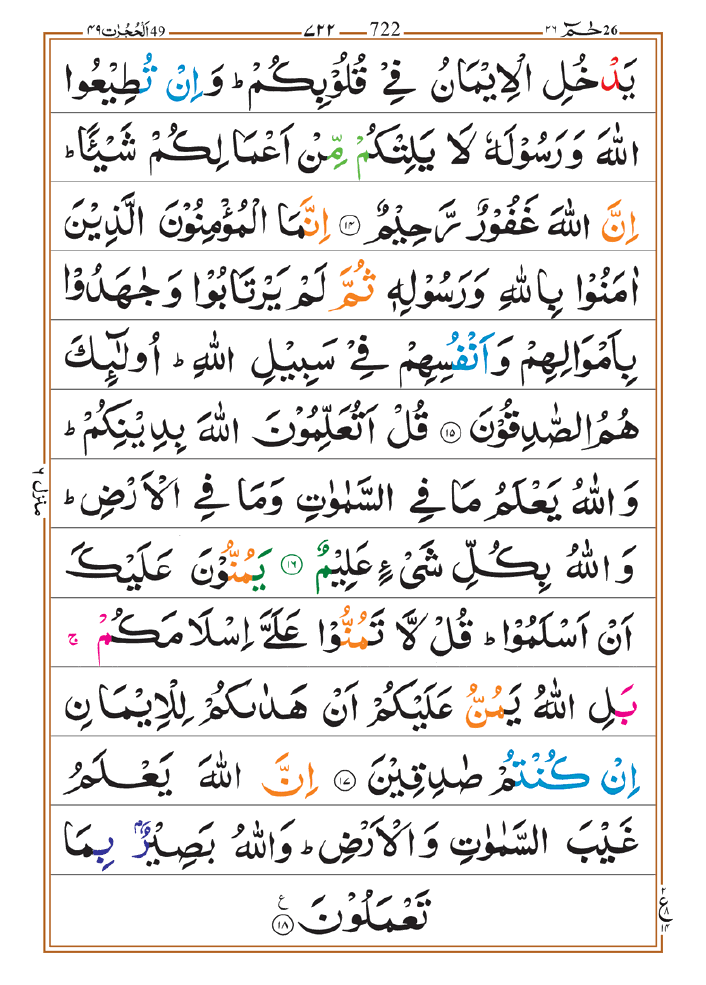 49اَلۡحُجُرٰت ۴۹ — ۷۲۲ — 722 — 26حٰمٓ ۲۶
يَدۡخُلِ الۡاِيۡمَانُ فِىۡ قُلُوۡبِكُمۡ‌ ؕ وَاِنۡ تُطِيۡعُوا
اللّٰهَ وَرَسُوۡلَهٗ لَا يَلِتۡكُمۡ مِّنۡ اَعۡمَالِكُمۡ شَيۡـًٔــا‌ ؕ
اِنَّ اللّٰهَ غَفُوۡرٌ رَّحِيۡمٌ ﴿۱۴﴾ اِنَّمَا الۡمُؤۡمِنُوۡنَ الَّذِيۡنَ
اٰمَنُوۡا بِاللّٰهِ وَرَسُوۡلِهٖ ثُمَّ لَمۡ يَرۡتَابُوۡا وَجٰهَدُوۡا
بِاَمۡوَالِهِمۡ وَاَنۡفُسِهِمۡ فِىۡ سَبِيۡلِ اللّٰهِ‌ ؕ اُولٰٓٮِٕكَ
هُمُ الصّٰدِقُوۡنَ ﴿۱۵﴾ قُلۡ اَتُعَلِّمُوۡنَ اللّٰهَ بِدِيۡنِكُمۡ ؕ
وَاللّٰهُ يَعۡلَمُ مَا فِى السَّمٰوٰتِ وَمَا فِى الۡاَرۡضِ‌ؕ
وَاللّٰهُ بِكُلِّ شَىۡءٍ عَلِيۡمٌ ﴿۱۶﴾ يَمُنُّوۡنَ عَلَيۡكَ
اَنۡ اَسۡلَمُوۡا‌ ؕ قُلْ لَّا تَمُنُّوۡا عَلَىَّ اِسۡلَامَكُمۡ‌ ۚ
بَلِ اللّٰهُ يَمُنُّ عَلَيۡكُمۡ اَنۡ هَدٰٮكُمۡ لِلۡاِيۡمَانِ
اِنۡ كُنۡتُمۡ صٰدِقِيۡنَ ﴿۱۷﴾ اِنَّ اللّٰهَ يَعۡلَمُ
غَيۡبَ السَّمٰوٰتِ وَالۡاَرۡضِ‌ؕ وَاللّٰهُ بَصِيۡرٌۢ بِمَا
تَعۡمَلُوۡنَ ﴿۱۸﴾ ع
منزل ۶
۲
ع ۸
۱۴